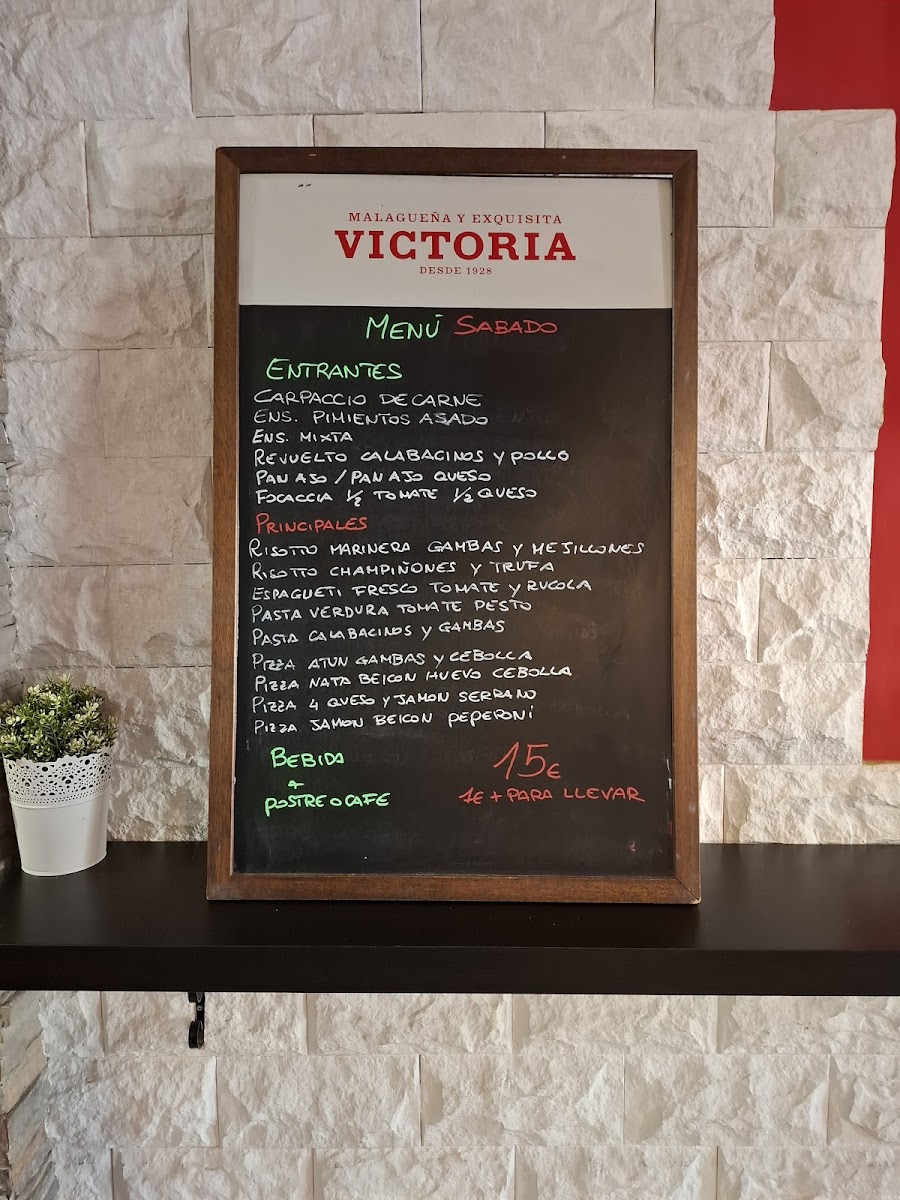 MALAGUEÑA Y EXQUISITA
VICTORIA
DESDE 1928
MENÚ SABADO
ENTRANTES
CARPACCIO DE CARNE
ENS. PIMIENTOS ASADO
ENS. MIXTA
REVUELTO CALABACINOS Y POLLO
PAN AJO / PAN AJO QUESO
FOCACCIA 1/2 TOMATE 1/2 QUESO
PRINCIPALES
RISOTTO MARINERA GAMBAS Y MEJILLONES
RISOTTO CHAMPIÑONES Y TRUFA
ESPAGUETI FRESCO TOMATE Y RUCOLA
PASTA VERDURA TOMATE PESTO
PASTA CALABACINOS Y GAMBAS
PIZZA ATUN GAMBAS Y CEBOLLA
PIZZA NATA BEICON HUEVO CEBOLLA
PIZZA 4 QUESO Y JAMON SERRANO
PIZZA JAMON BEICON PEPERONI
BEBIDA
+
POSTRE O CAFE
15€
1€ + PARA LLEVAR